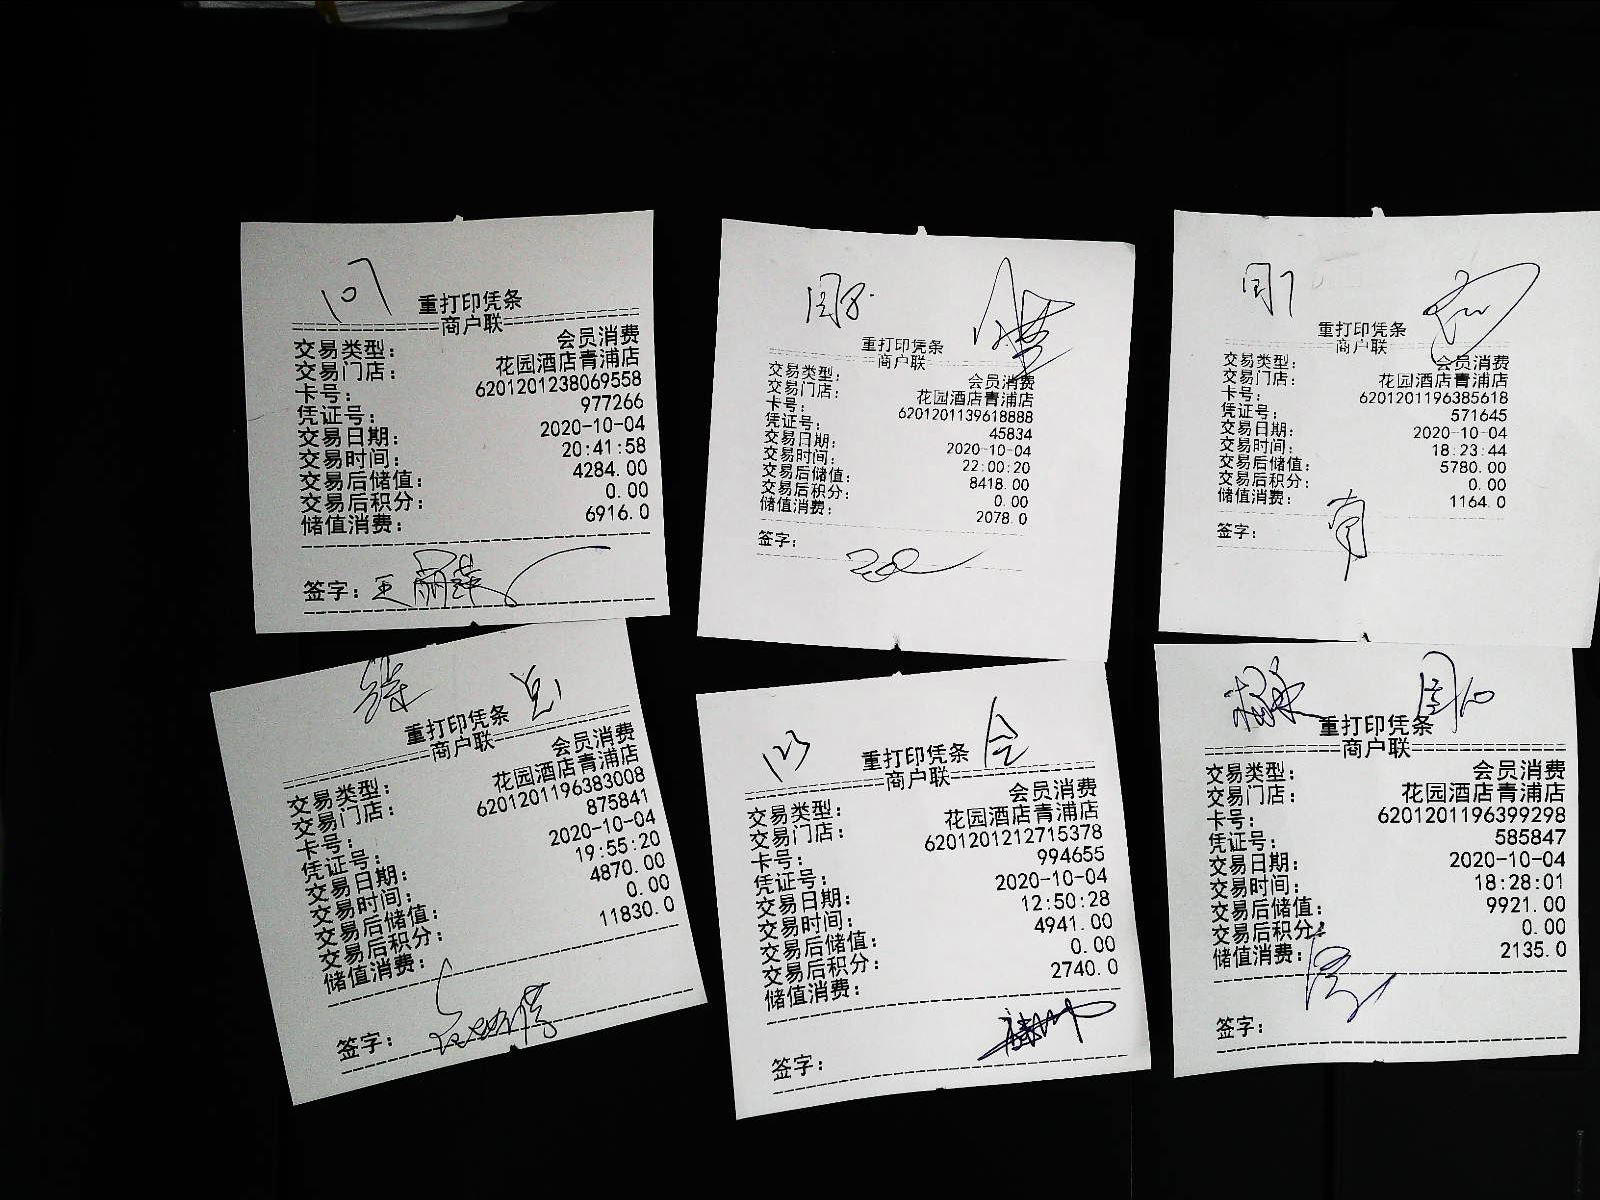 107
重打印凭条
商户联
交易类型: 会员消费
交易门店: 花园酒店青浦店
卡号: 6201201238069558
凭证号: 977266
交易日期: 2020-10-04
交易时间: 20:41:58
交易后储值: 4284.00
交易后积分: 0.00
储值消费: 6916.0
签字:
周8
重打印凭条
商户联
交易类型: 会员消费
交易门店: 花园酒店青浦店
卡号: 6201201139618888
凭证号: 45834
交易日期: 2020-10-04
交易时间: 22:00:20
交易后储值: 8418.00
交易后积分: 0.00
储值消费: 2078.0
签字:
周7
重打印凭条
商户联
交易类型: 会员消费
交易门店: 花园酒店青浦店
卡号: 6201201196385618
凭证号: 571645
交易日期: 2020-10-04
交易时间: 18:23:44
交易后储值: 5780.00
交易后积分: 0.00
储值消费: 1164.0
签字:
重打印凭条
商户联
交易类型: 会员消费
交易门店: 花园酒店青浦店
卡号: 6201201196383008
凭证号: 875841
交易日期: 2020-10-04
交易时间: 19:55:20
交易后储值: 4870.00
交易后积分: 0.00
储值消费: 11830.0
签字:
123
重打印凭条
商户联
交易类型: 会员消费
交易门店: 花园酒店青浦店
卡号: 6201201212715378
凭证号: 994655
交易日期: 2020-10-04
交易时间: 12:50:28
交易后储值: 4941.00
交易后积分: 0.00
储值消费: 2740.0
签字:
周10
重打印凭条
商户联
交易类型: 会员消费
交易门店: 花园酒店青浦店
卡号: 6201201196399298
凭证号: 585847
交易日期: 2020-10-04
交易时间: 18:28:01
交易后储值: 9921.00
交易后积分: 0.00
储值消费: 2135.0
签字: